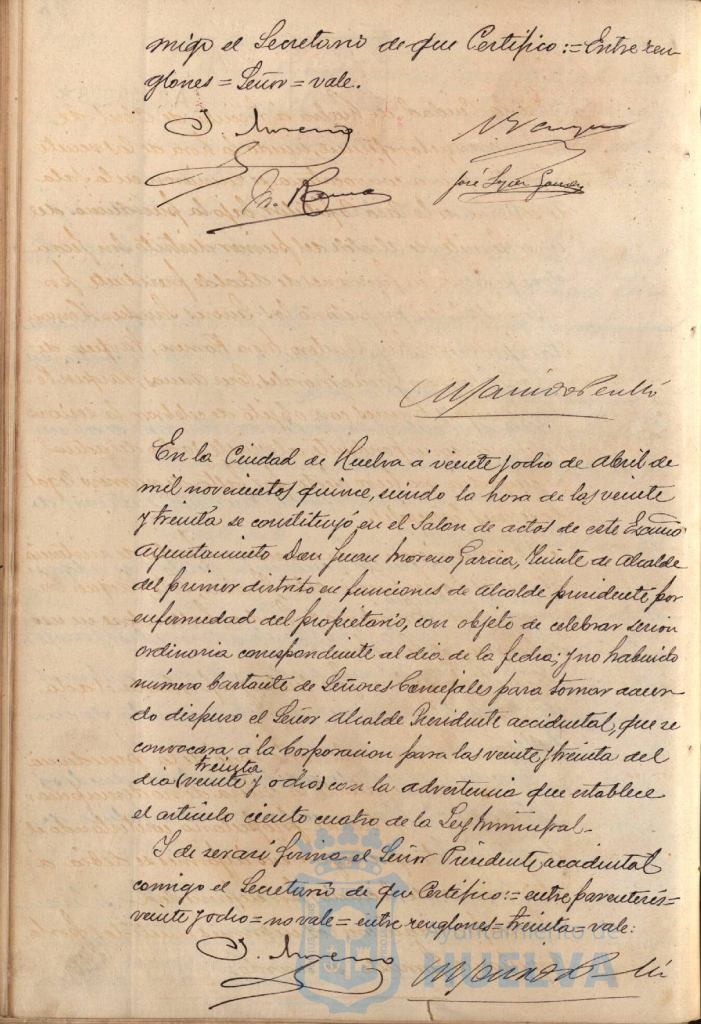 migo el Secretario de que Certifico:=Entre ren-
glones=Señor=vale.
J. Moreno
José López
En la Ciudad de Huelva á veinte y ocho de Abril de
mil novecientos quince, siendo la hora de las veinte
y treinta se constituyó en el Salon de actos de este Excmo
Ayuntamiento Don Juan Moreno Garcia, Teniente de Alcalde
del primer distrito en funciones de Alcalde presidente por
enfermedad del propietario, con objeto de celebrar sesion
ordinaria correspondiente al dia de la fecha; y no habiendo
número bastante de Señores Concejales para tomar acuer-
do dispuso el Señor Alcalde Presidente accidental, que se
convocara á la Corporacion para las veinte y treinta del
treinta
dia (veinte y ocho) con la advertencia que establece
el artículo ciento cuatro de la Ley Municipal.-
Y de ser asi firma el Señor Presidente accidental
comigo el Secretario de que Certifico:=entre parentesis=
veinte y ocho=no vale=entre renglones=treinta=vale:
J. Moreno
Ayuntamiento de
HUELVA